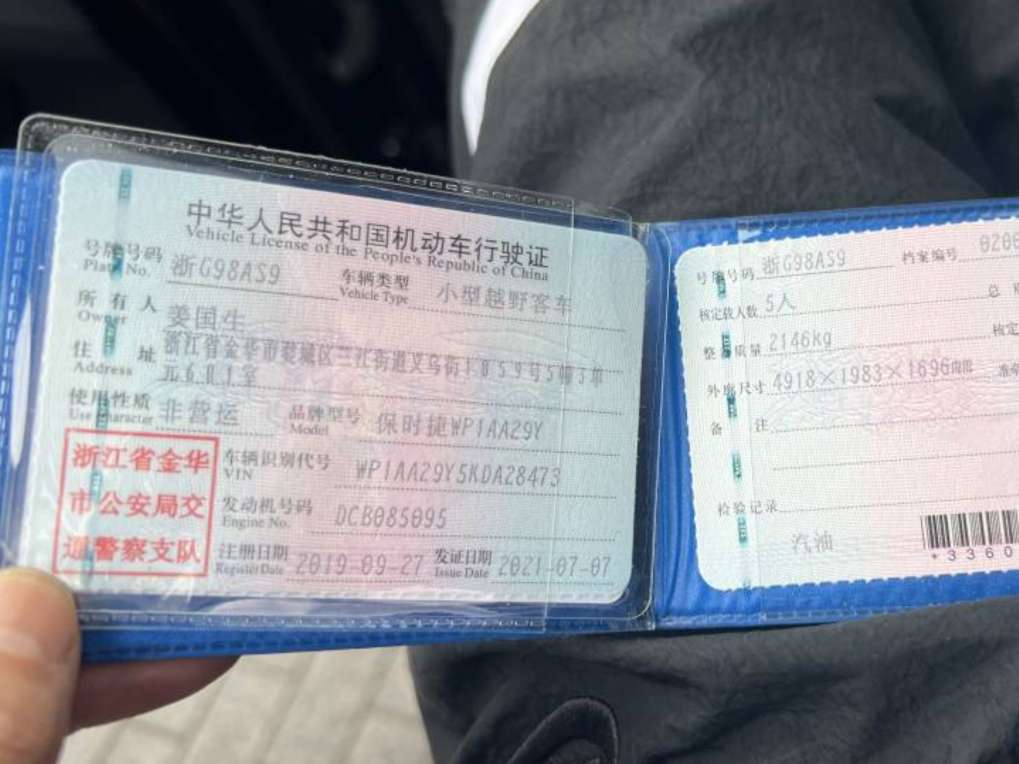 中华人民共和国机动车行驶证
Vehicle License of the People's Republic of China
号牌号码 浙G98AS9 车辆类型 小型越野客车
Plate No. Vehicle Type
所有人 姜国生
Owner
住址 浙江省金华市婺城区三江街道义乌街1859号5幢3单
Address 元601室
使用性质 非营运 品牌型号 保时捷WP1AA29Y
Use Character Model
浙江省金华
市公安局交
通警察支队
车辆识别代号 WP1AA29Y5KDA28473
VIN
发动机号码 DCB085095
Engine No.
注册日期 2019-09-27 发证日期 2021-07-07
Register Date Issue Date
号牌号码 浙G98AS9 档案编号 0200
核定载人数 5人 总
整备质量 2146kg 核定
外廓尺寸 4918×1983×1696mm
备注
检验记录
汽油
*3360